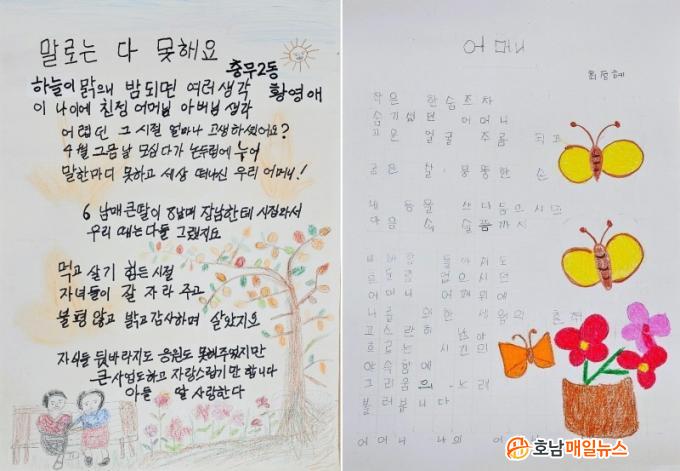 말로는 다 못해요
충무2동
황영애
하늘이 맑으니 밤되면 여러생각
이 나이에 친정 어머님 아버님 생각
어렵던 그 시절 얼마나 고생하셨어요?
4월 그믐날 모심다가 논두렁에 누어
말한마디 못하고 세상 떠나신 우리 어머니!
6남매 큰딸이 8남매 장남한테 시집와서
우리 때는 다들 그랬지요
먹고 살기 힘든 시절
자녀들이 잘 자라 주고
불평 않고 밝고 감사하며 살았지요
자식들 뒷바라지도 응원도 못해주었지만
큰사업도하고 자랑스럽기만 합니다
아들 딸 사랑한다
어머니
작은 한숨조차
숨기셨던 어머니
고운 얼굴 주름 되고
굽은 찰 뭉뚱한 손
제 등을 쓰다듬으시던
마음 속 슬픔까지
어머니 어깨위에
나를 위한 세월의 흔적
고스란히 남아
흐르는 시간의
야속함에
그리움의 노래
불러봅니다
어머니 나의 어머니
호남매일뉴스